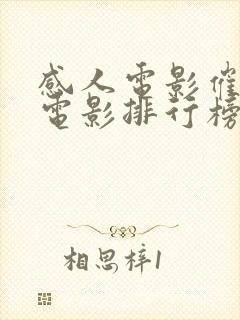 感人电影催
电影排行榜
相思梓1